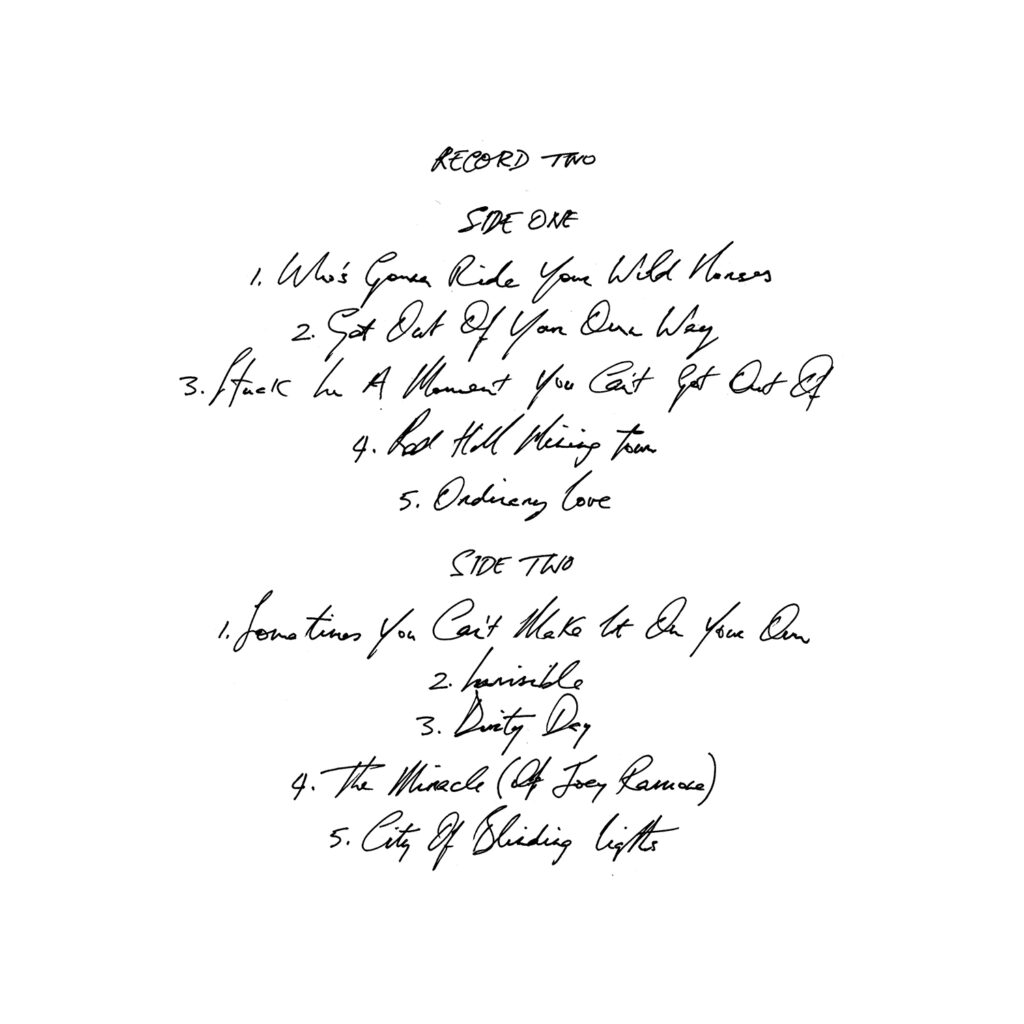 RECORD TWO
SIDE ONE
1. Who's Gonna Ride Your Wild Horses
2. Get Out Of Your Own Way
3. Stuck In A Moment You Can't Get Out Of
4. Red Hill Mining Town
5. Ordinary Love
SIDE TWO
1. Sometimes You Can't Make It On Your Own
2. Invisible
3. Dirty Day
4. The Miracle (Of Joey Ramone)
5. City Of Blinding Lights